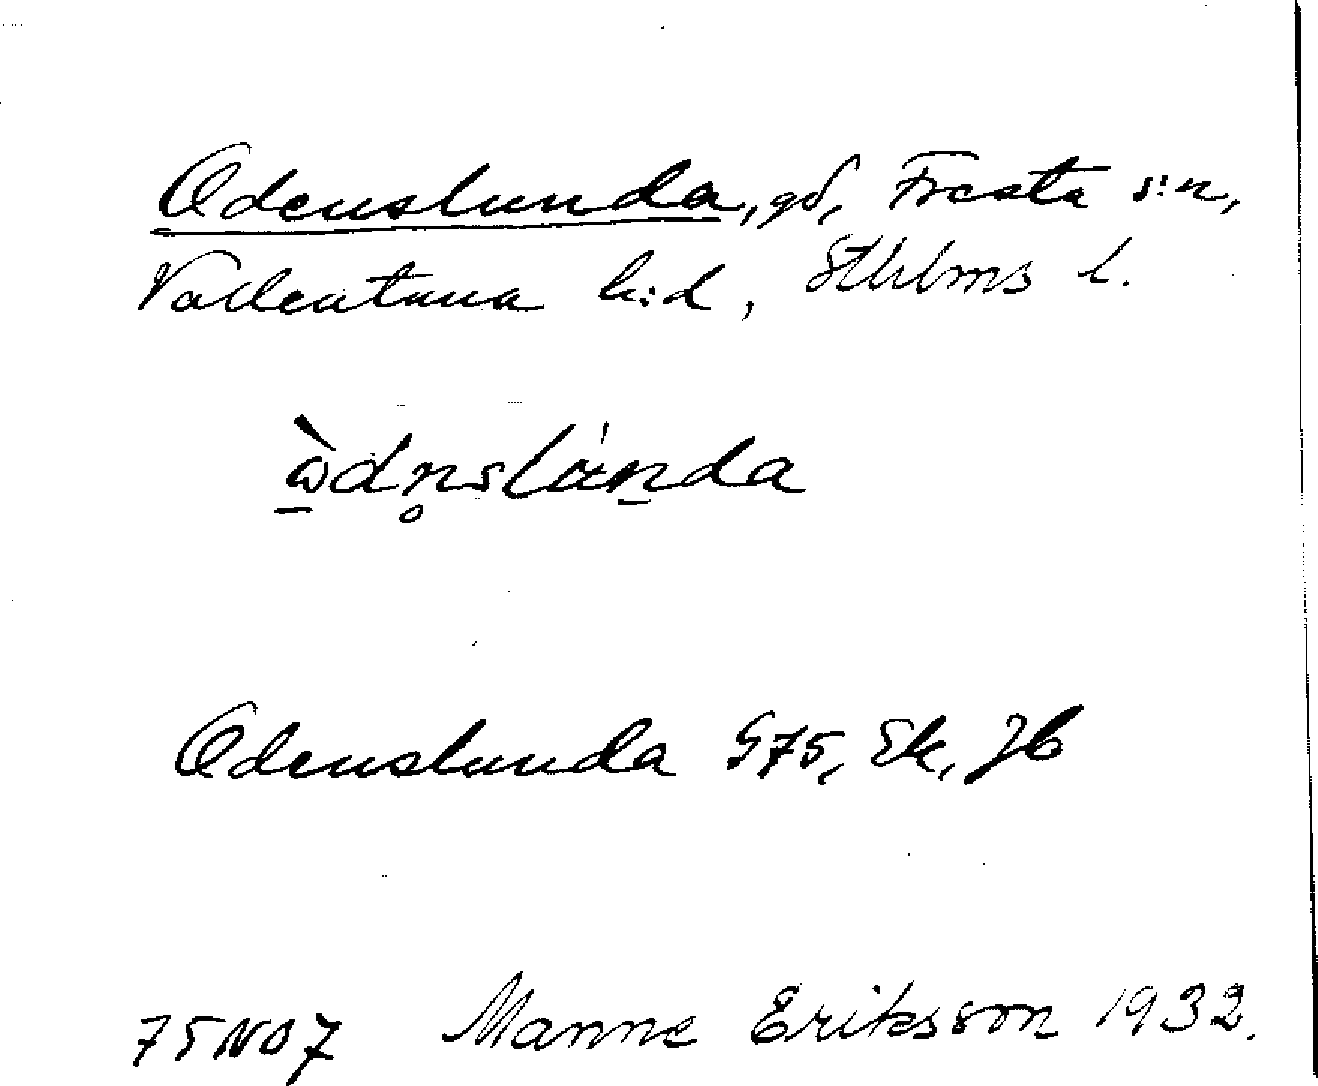 Odenslunda, gd, Fresta s:n,
Vallentuna h:d, Sthlms l.
ὼdn̥slù̍nda
Odenslunda G75, Ek, Jb
75NO7 Manne Eriksson 1932.